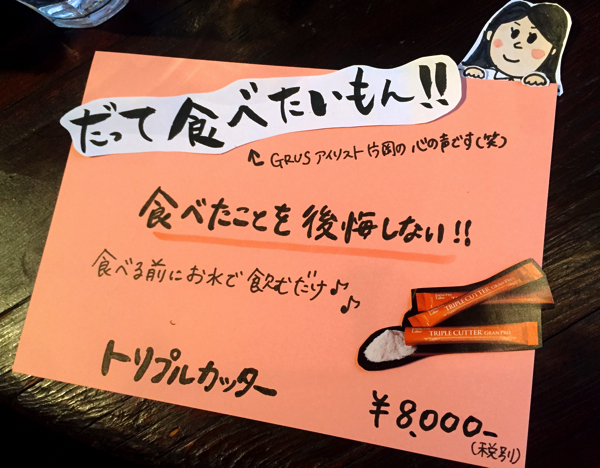 だって食べたいもん!!
← GRUS アイリスト 片岡の 心の声です(笑)
食べたことを後悔しない!!
食べる前にお水で飲むだけ♪♪
TRIPLE CUTTER GRAN PRO
TRIPLE CUTTER GRAN PRO
トリプルカッター
¥8,000-
(税別)